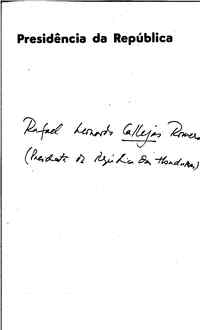 Presidência da República
Rafael Leonardo Callejas Romero
(Presidente da República das Honduras)